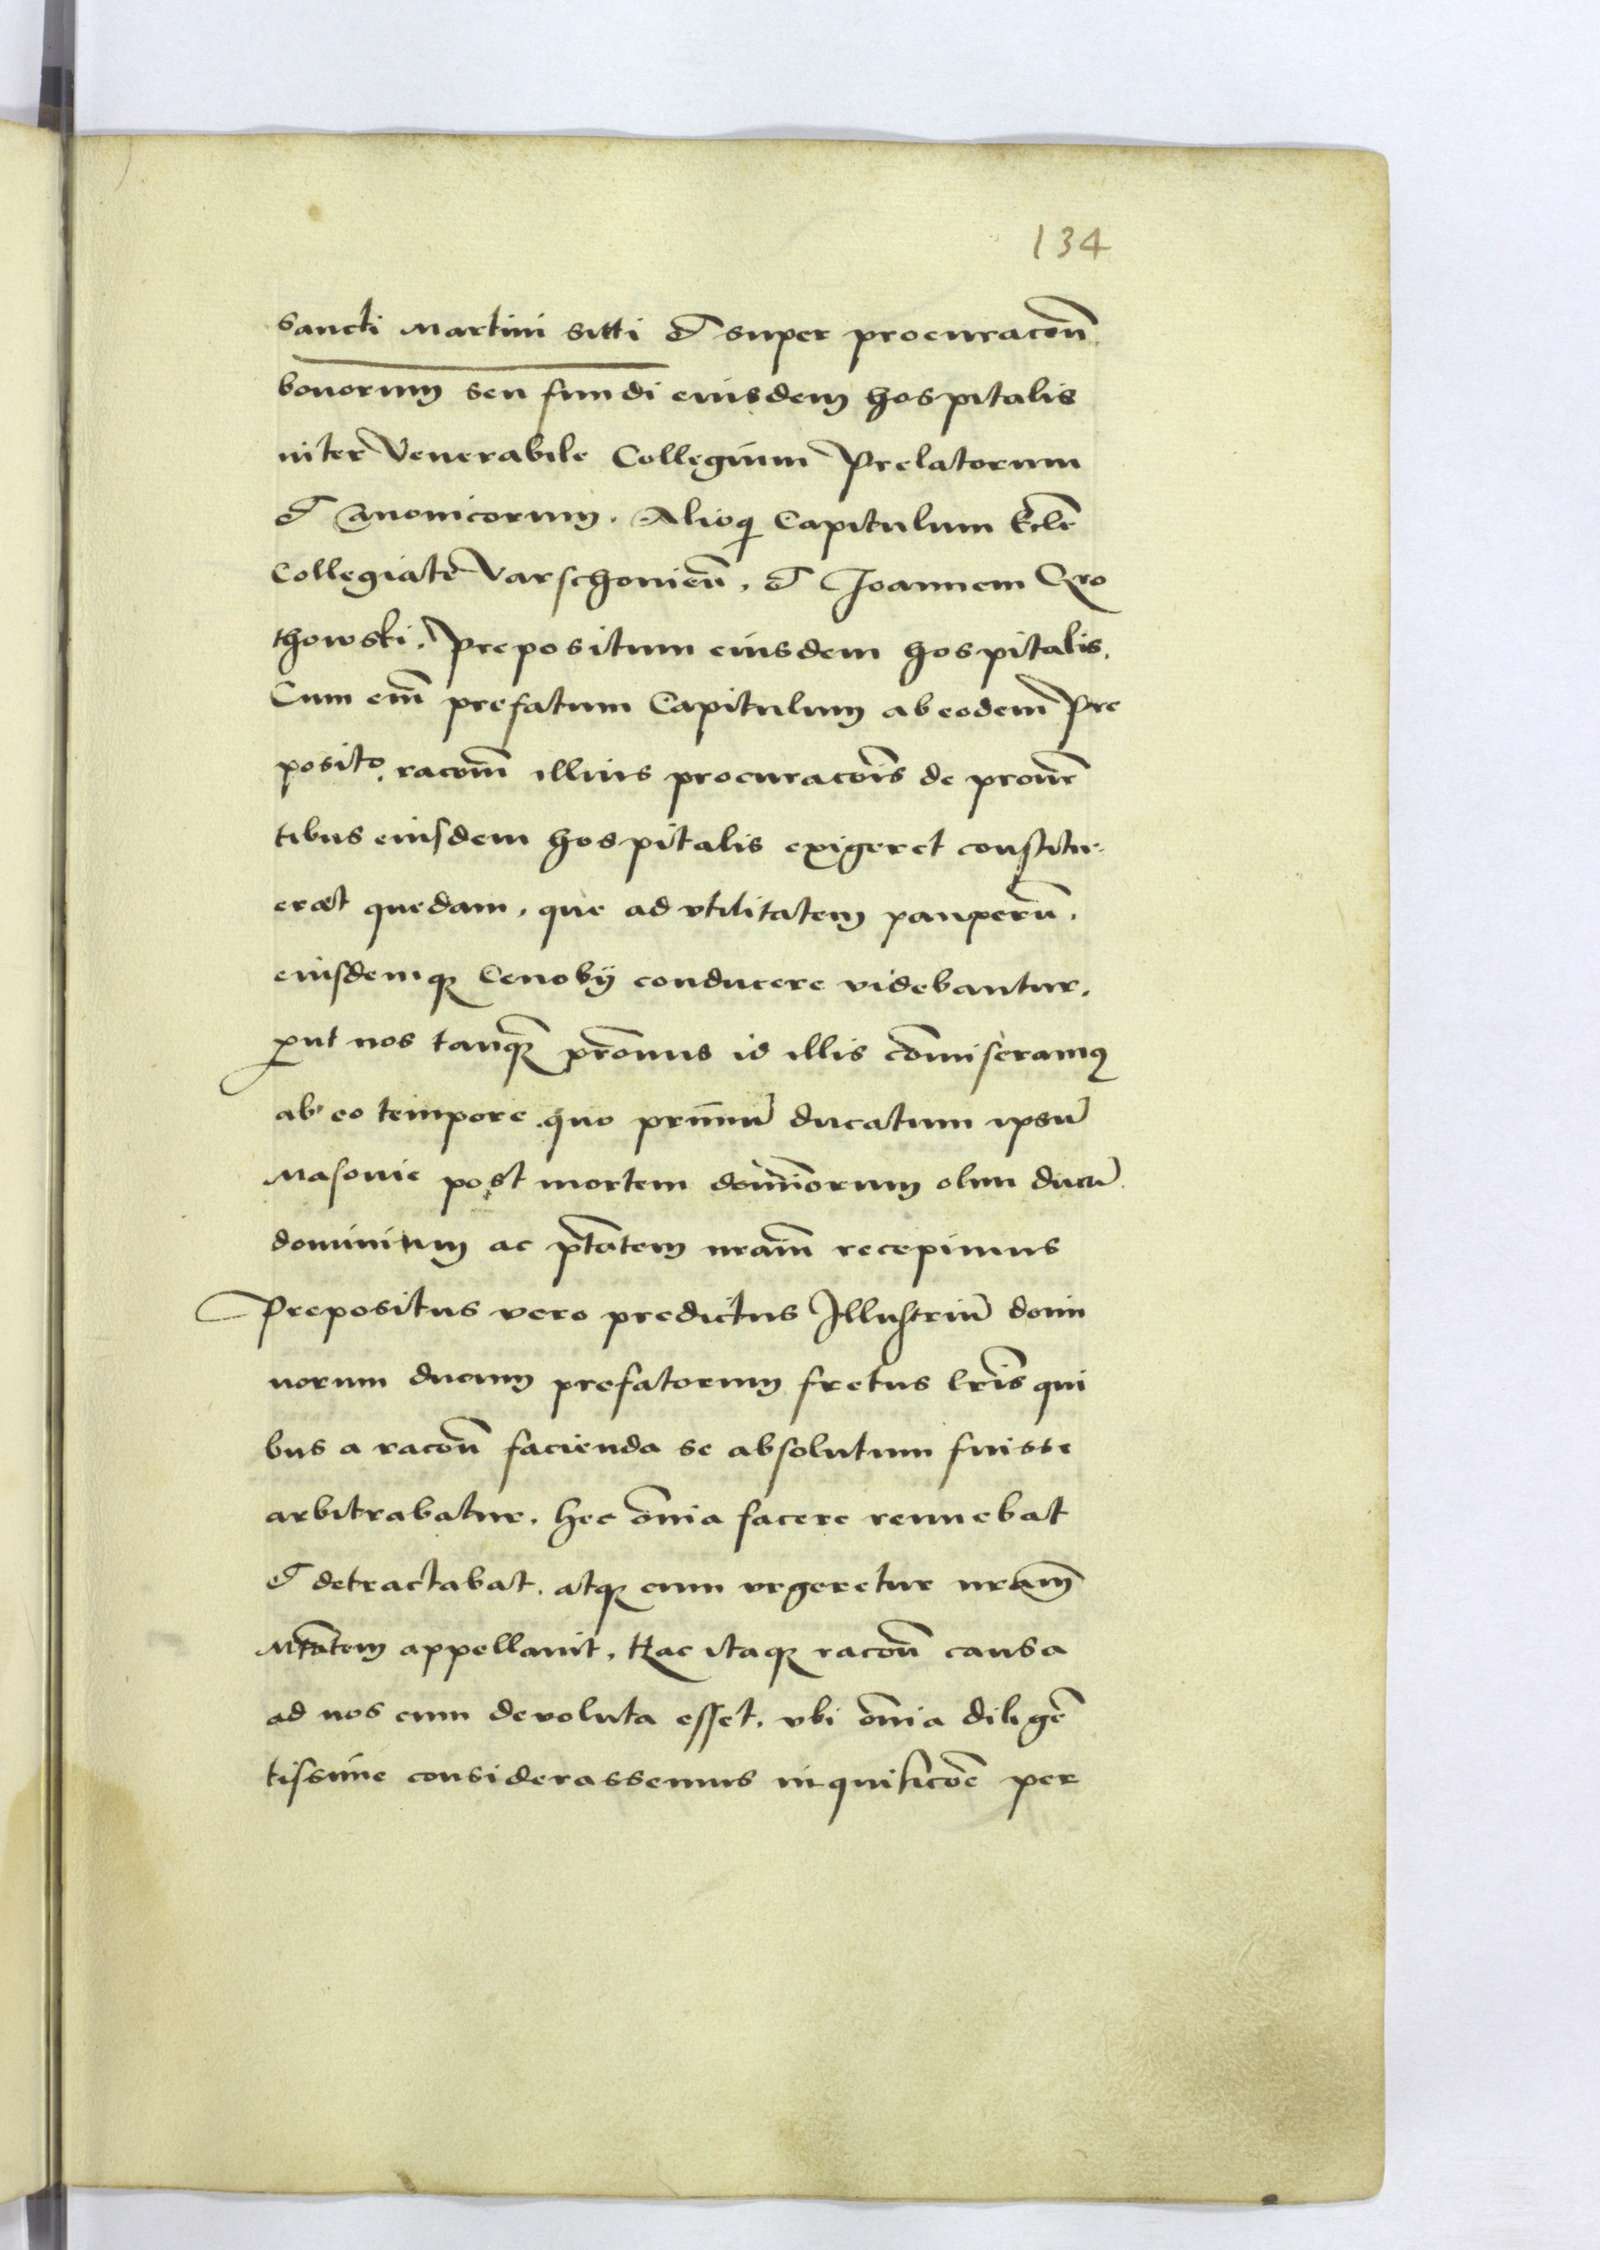 134
Sancti Martini sitti et super procuracōn
bonorum seu fundi eiusdem hospitalis
inter Venerabile Collegium Prelatorum
et Canonicorum. Alioq Capitulum Eccłe
Collegiate Varschovieñ. et Joannem Qro
thowski. Prepositum eiusdem hospitalis.
Cum em̄ prefatum Capitulum ab eodem Pre
posito, racom̄ illius procuracōis de proueñ
tibus eiusdem hospitalis exigeret constitu-
eret quedam, que ad vtilitatem pauperū.
eiusdemq Cenobij conducere videbantur.
put nos tanq̄ p̄romus id illis com̄iseramq
ab eo tempore quo primū ducatum ipsū
Masovie post mortem dominorum olim ducū
dominium ac p̄tatem nram̄ recepimus
Prepositus vero predictus Illustriū domi
norum ducum prefatorum fretus lr̄is qui
bus a racōn facienda se absolutum fuisse
arbitrabatur. hec om̄ia facere rennebat
et detractabat. atq cum vrgeretur nram̄
Mtātem appellauit. Hac itaq racōn causa
ad nos cum devoluta esset. vbi om̄ia diligē
tissime considerassemus inquisicōe per